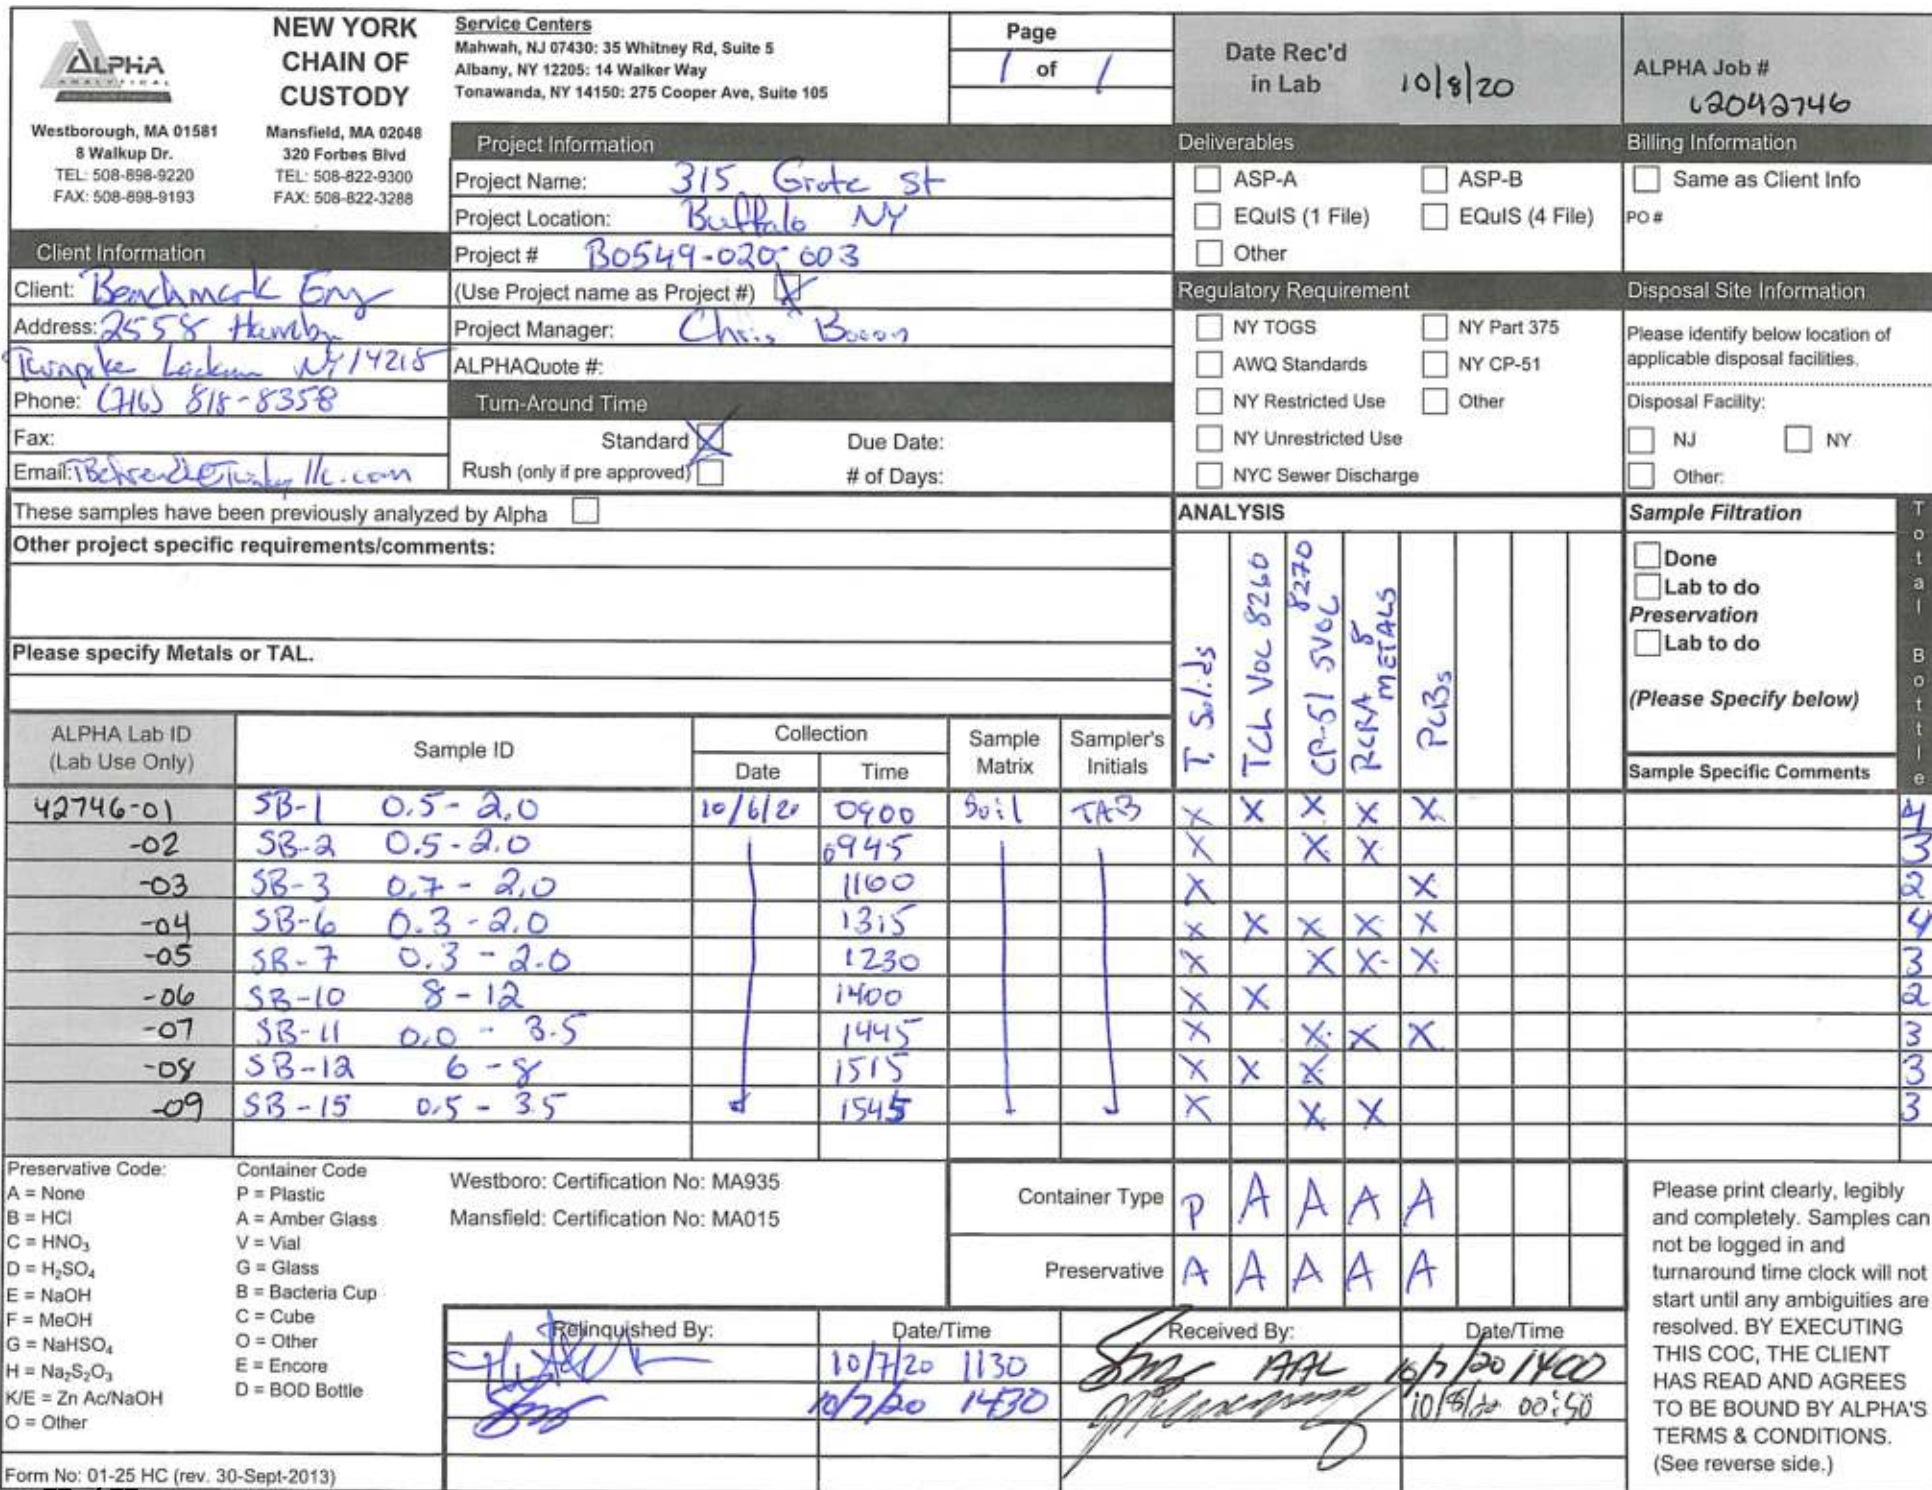 ALPHA
ANALYTICAL
Westborough, MA 01581
8 Walkup Dr.
TEL: 508-898-9220
FAX: 508-898-9193
NEW YORK
CHAIN OF
CUSTODY
Mansfield, MA 02048
320 Forbes Blvd
TEL: 508-822-9300
FAX: 508-822-3288
Service Centers
Mahwah, NJ 07430: 35 Whitney Rd, Suite 5
Albany, NY 12205: 14 Walker Way
Tonawanda, NY 14150: 275 Cooper Ave, Suite 105
Page
1 of 1
Date Rec'd
in Lab 10/8/20
ALPHA Job #
L2042746
Client Information
Client: Benchmark Eng
Address: 2558 Hamburg
Turnpike NY 14218
Phone: (716) 818-8358
Fax:
Email:
Project Information
Project Name: 315 Grote St
Project Location: Buffalo NY
Project # B0549-020-003
(Use Project name as Project #) X
Project Manager: Chris
ALPHAQuote #:
Turn-Around Time
Standard X Due Date:
Rush (only if pre approved) # of Days:
Deliverables
ASP-A ASP-B
EQuIS (1 File) EQuIS (4 File)
Other
Regulatory Requirement
NY TOGS NY Part 375
AWQ Standards NY CP-51
NY Restricted Use Other
NY Unrestricted Use
NYC Sewer Discharge
Billing Information
Same as Client Info
PO #
Disposal Site Information
Please identify below location of
applicable disposal facilities.
Disposal Facility:
NJ NY
Other:
These samples have been previously analyzed by Alpha
Other project specific requirements/comments:
Please specify Metals or TAL.
ANALYSIS
T. Solids
TCL VOC 8260
CP-51 SVOC 8270
RCRA 8 METALS
PCBs
Sample Filtration
Done
Lab to do
Preservation
Lab to do
(Please Specify below)
Total Bottle
ALPHA Lab ID
(Lab Use Only)
Sample ID
Collection
Date Time
Sample
Matrix
Sampler's
Initials
Sample Specific Comments
42746-01 SB-1 0.5-2.0 10/6/20 0900 Soil TAB X X X X X 4
-02 SB-2 0.5-2.0 0945 X X X 3
-03 SB-3 0.7-2.0 1100 X X 2
-04 SB-6 0.3-2.0 1315 X X X X X 4
-05 SB-7 0.3-2.0 1230 X X X X 3
-06 SB-10 8-12 1400 X X 2
-07 SB-11 0.0-3.5 1445 X X X X 3
-08 SB-12 6-8 1515 X X X 3
-09 SB-15 0.5-3.5 1545 X X X 3
Preservative Code:
A = None
B = HCl
C = HNO₃
D = H₂SO₄
E = NaOH
F = MeOH
G = NaHSO₄
H = Na₂S₂O₃
K/E = Zn Ac/NaOH
O = Other
Container Code
P = Plastic
A = Amber Glass
V = Vial
G = Glass
B = Bacteria Cup
C = Cube
O = Other
E = Encore
D = BOD Bottle
Westboro: Certification No: MA935
Mansfield: Certification No: MA015
Container Type P A A A A
Preservative A A A A A
Relinquished By: Date/Time Received By: Date/Time
10/7/20 1130 AAL 10/7/20 1400
10/7/20 1430 10/8/20 00:50
Please print clearly, legibly
and completely. Samples can
not be logged in and
turnaround time clock will not
start until any ambiguities are
resolved. BY EXECUTING
THIS COC, THE CLIENT
HAS READ AND AGREES
TO BE BOUND BY ALPHA'S
TERMS & CONDITIONS.
(See reverse side.)
Form No: 01-25 HC (rev. 30-Sept-2013)